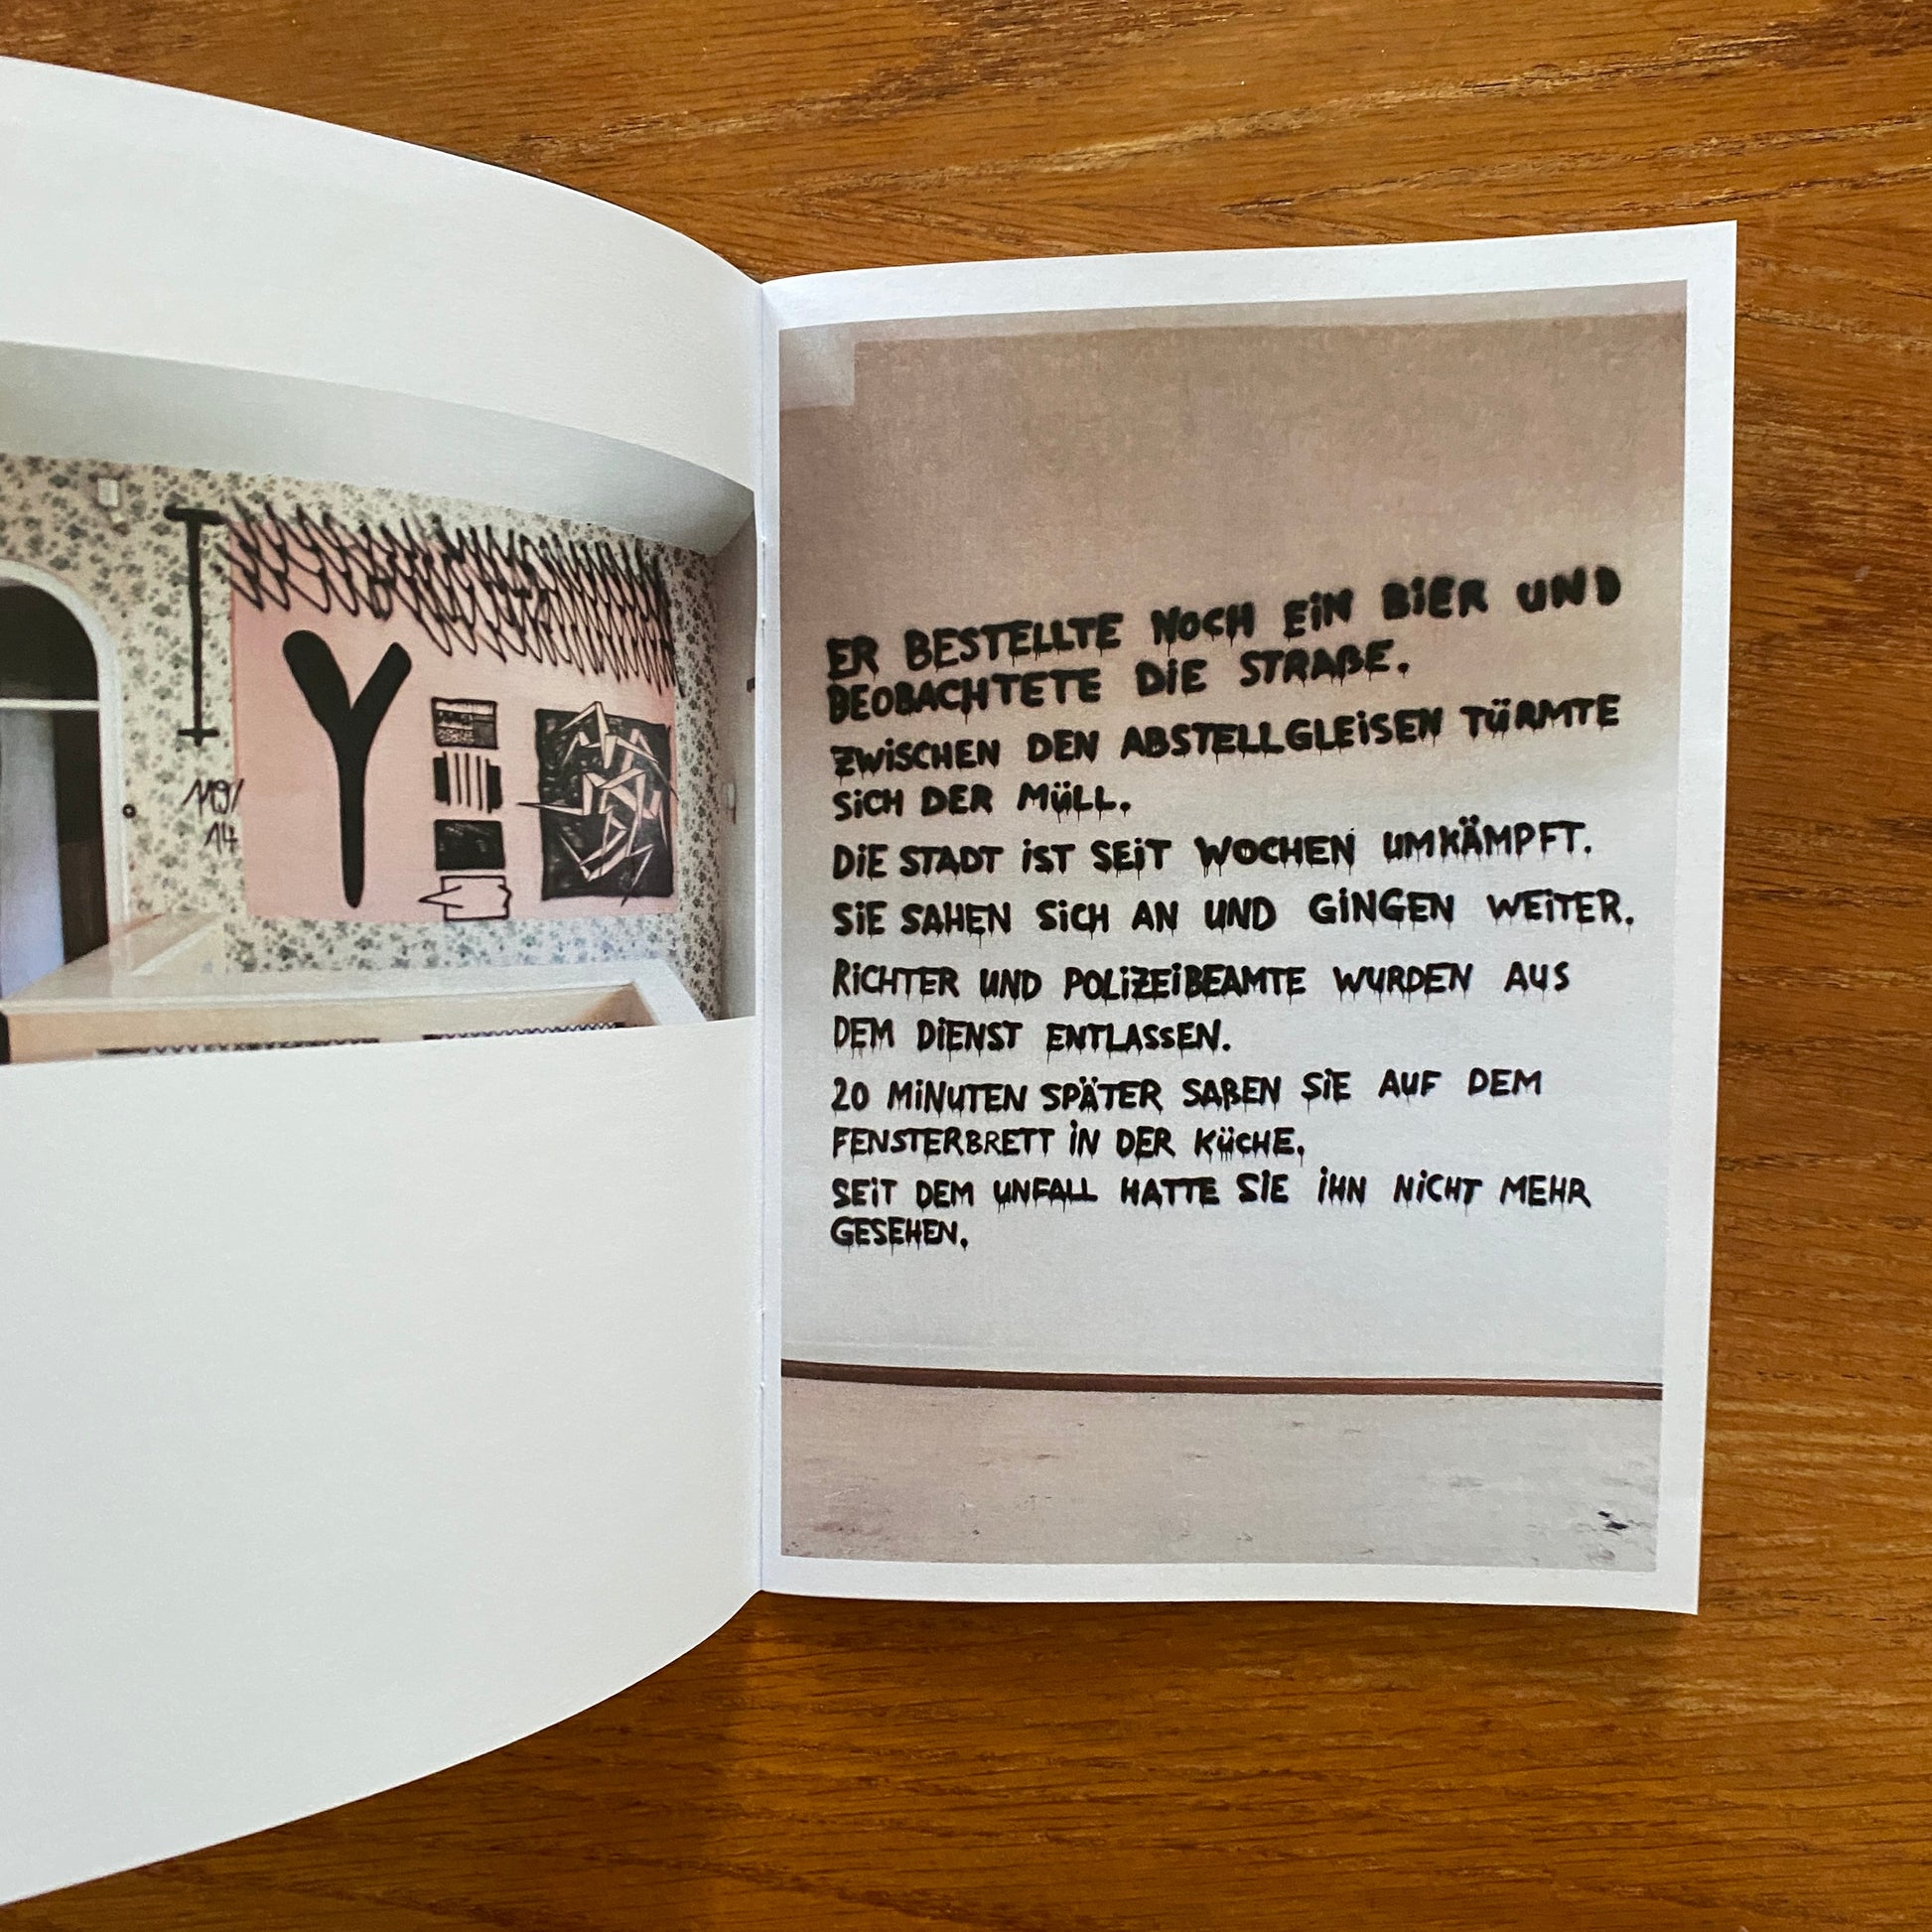 Y
ER BESTELLTE NOCH EiN BiER UND
BEOBACHTETE DiE STRAßE.
ZWiSCHEN DEN ABSTELLGLEiSEN TÜRMTE
SiCH DER MÜLL.
DiE STADT iST SEiT WOCHEN UMKÄMPFT.
SiE SAHEN SiCH AN UND GiNGEN WEiTER.
RiCHTER UND POLiZEiBEAMTE WURDEN AUS
DEM DiENST ENTLASSEN.
20 MiNUTEN SPÄTER SAßEN SiE AUF DEM
FENSTERBRETT iN DER KÜCHE.
SEiT DEM UNFALL HATTE SiE iHN NiCHT MEHR
GESEHEN.